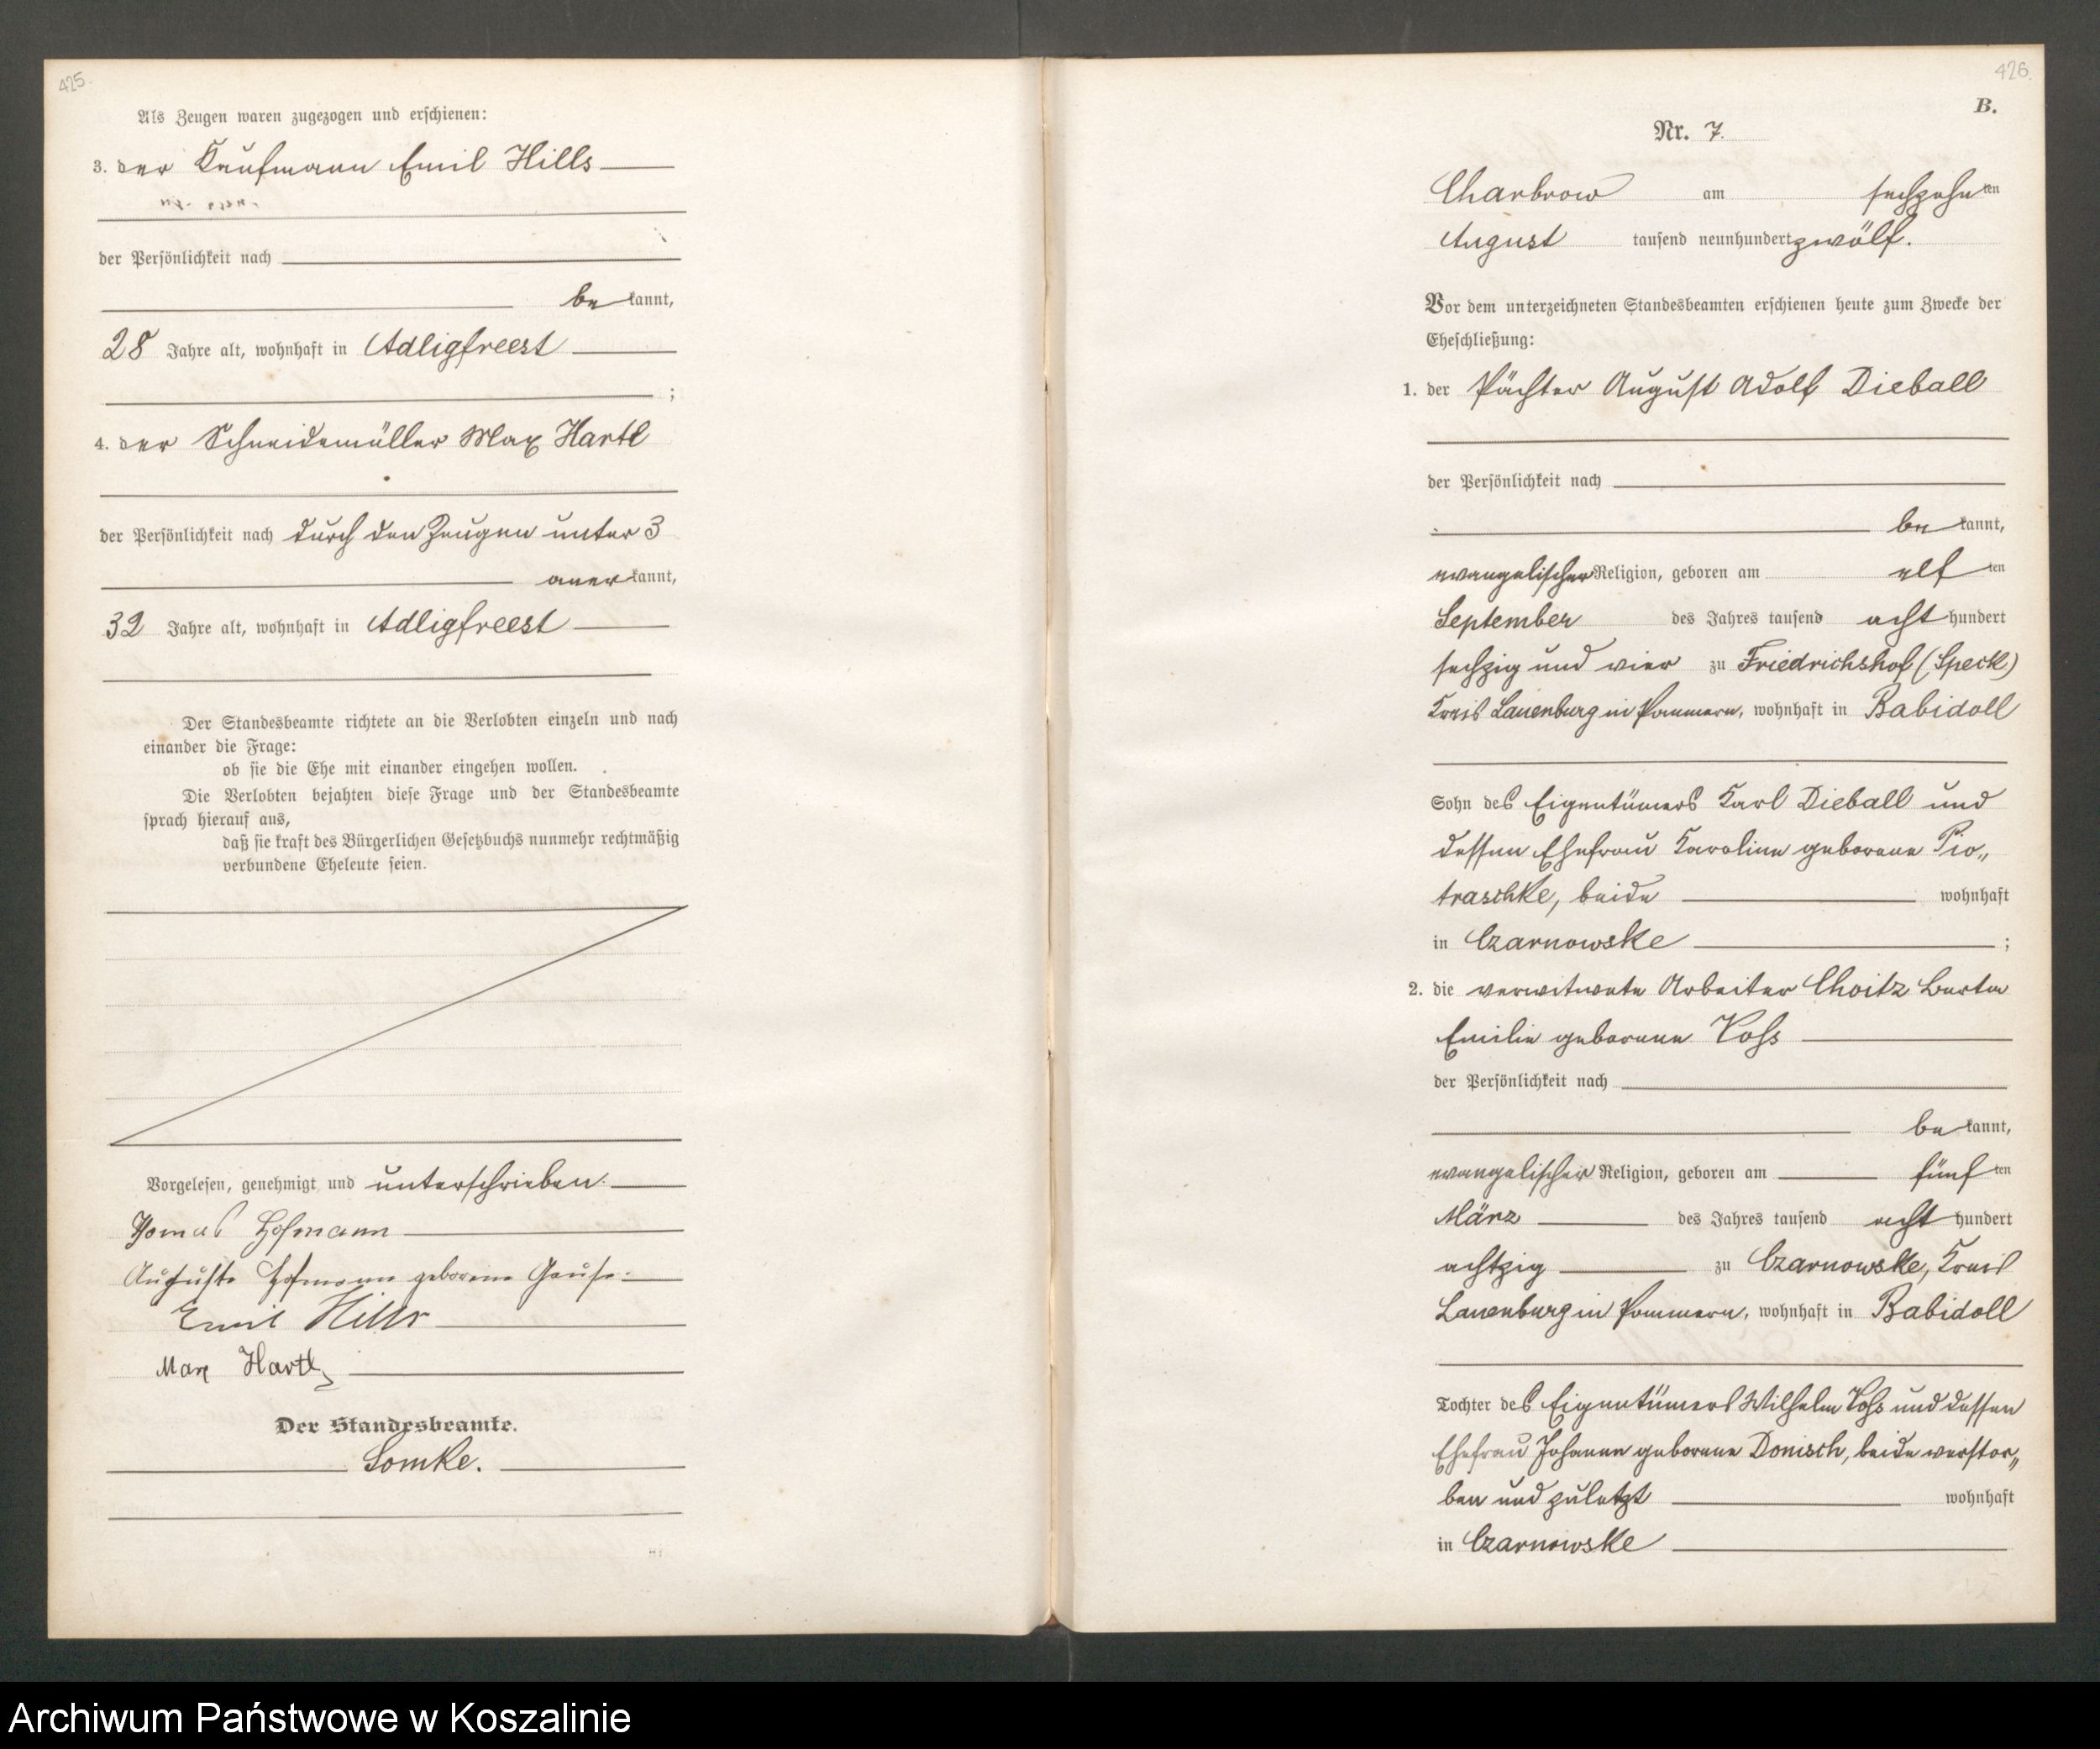 425.
Als Zeugen waren zugezogen und erschienen:
3. der Kaufmann Emil Hills
der Persönlichkeit nach
be kannt,
28 Jahre alt, wohnhaft in Adligfreest
;
4. der Schneidemüller Max Hartl
der Persönlichkeit nach durch den Zeugen unter 3
aner kannt,
32 Jahre alt, wohnhaft in Adligfreest
Der Standesbeamte richtete an die Verlobten einzeln und nach
einander die Frage:
ob sie die Ehe mit einander eingehen wollen.
Die Verlobten bejahten diese Frage und der Standesbeamte
sprach hierauf aus,
daß sie kraft des Bürgerlichen Gesetzbuchs nunmehr rechtmäßig
verbundene Eheleute seien.
Vorgelesen, genehmigt und unterschrieben.
Hofmann
Auguste Hofmann geborene Gause.
Emil Hills
Max Hartl
Der Standesbeamte.
Lomke.
426.
B.
Nr. 7.
Charbrow am sechzehn ten
August tausend neunhundert zwölf.
Vor dem unterzeichneten Standesbeamten erschienen heute zum Zwecke der
Eheschließung:
1. der Pächter August Adolf Dieball
der Persönlichkeit nach
be kannt,
evangelischer Religion, geboren am elf ten
September des Jahres tausend acht hundert
sechzig und vier zu Friedrichshof (Speck)
Kreis Lauenburg in Pommern, wohnhaft in Babidoll
Sohn des Eigentümers Karl Dieball und
dessen Ehefrau Karoline geborene Pio„
traschke, beide wohnhaft
in Czarnowske ;
2. die verwitwete Arbeiter Choitz Berta
Emilie geborene Voss
der Persönlichkeit nach
be kannt,
evangelischer Religion, geboren am fünf ten
März des Jahres tausend acht hundert
achtzig zu Czarnowske, Kreis
Lauenburg in Pommern, wohnhaft in Babidoll
Tochter des Eigentümers Wilhelm Voss und dessen
Ehefrau Johanne geborene Donisch, beide verstor„
ben und zuletzt wohnhaft
in Czarnowske
Archiwum Państwowe w Koszalinie